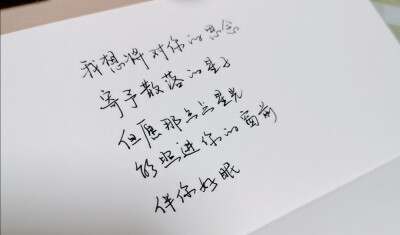 我想将对你的思念
寄予散落的星子
但愿那点点星光
能照进你的窗前
伴你好眠